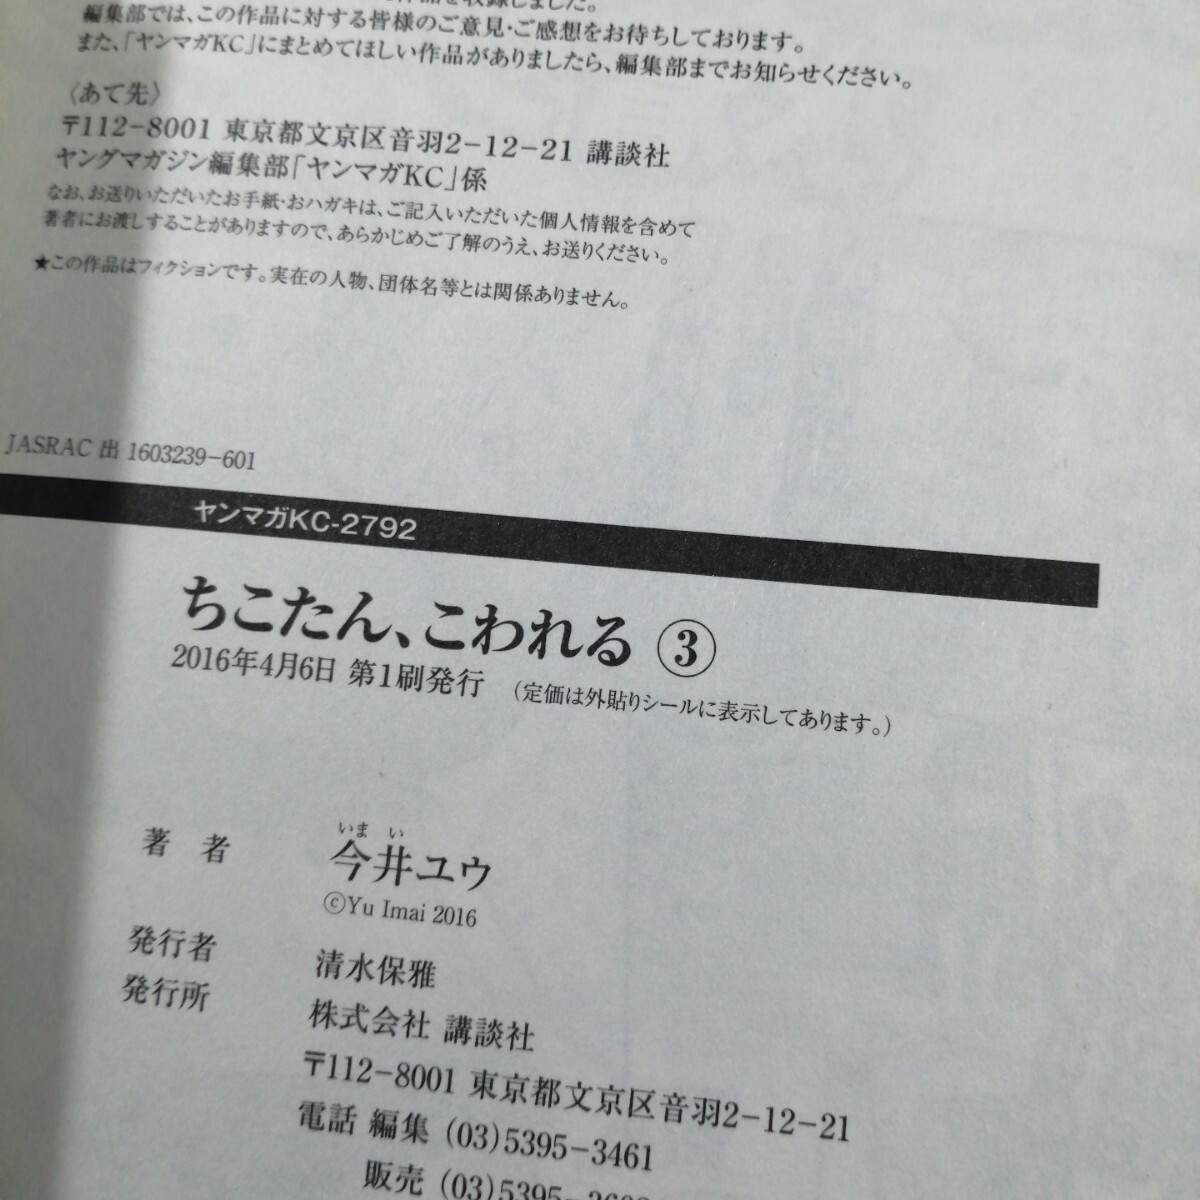 作品を収録しました。
編集部では、この作品に対する皆様のご意見・ご感想をお待ちしております。
また、「ヤンマガKC」にまとめてほしい作品がありましたら、編集部までお知らせください。
〈あて先〉
〒112-8001 東京都文京区音羽2-12-21 講談社
ヤングマガジン編集部「ヤンマガKC」係
なお、お送りいただいたお手紙・おハガキは、ご記入いただいた個人情報を含めて
著者にお渡しすることがありますので、あらかじめご了解のうえ、お送りください。
★この作品はフィクションです。実在の人物、団体名等とは関係ありません。
JASRAC 出 1603239-601
ヤンマガKC-2792
ちこたん、こわれる ③
2016年4月6日 第1刷発行 （定価は外貼りシールに表示してあります。）
いま い
著 者 今井ユウ
©Yu Imai 2016
発行者 清水保雅
発行所 株式会社 講談社
〒112-8001 東京都文京区音羽2-12-21
電話 編集 (03)5395-3461
販売 (03)5395-